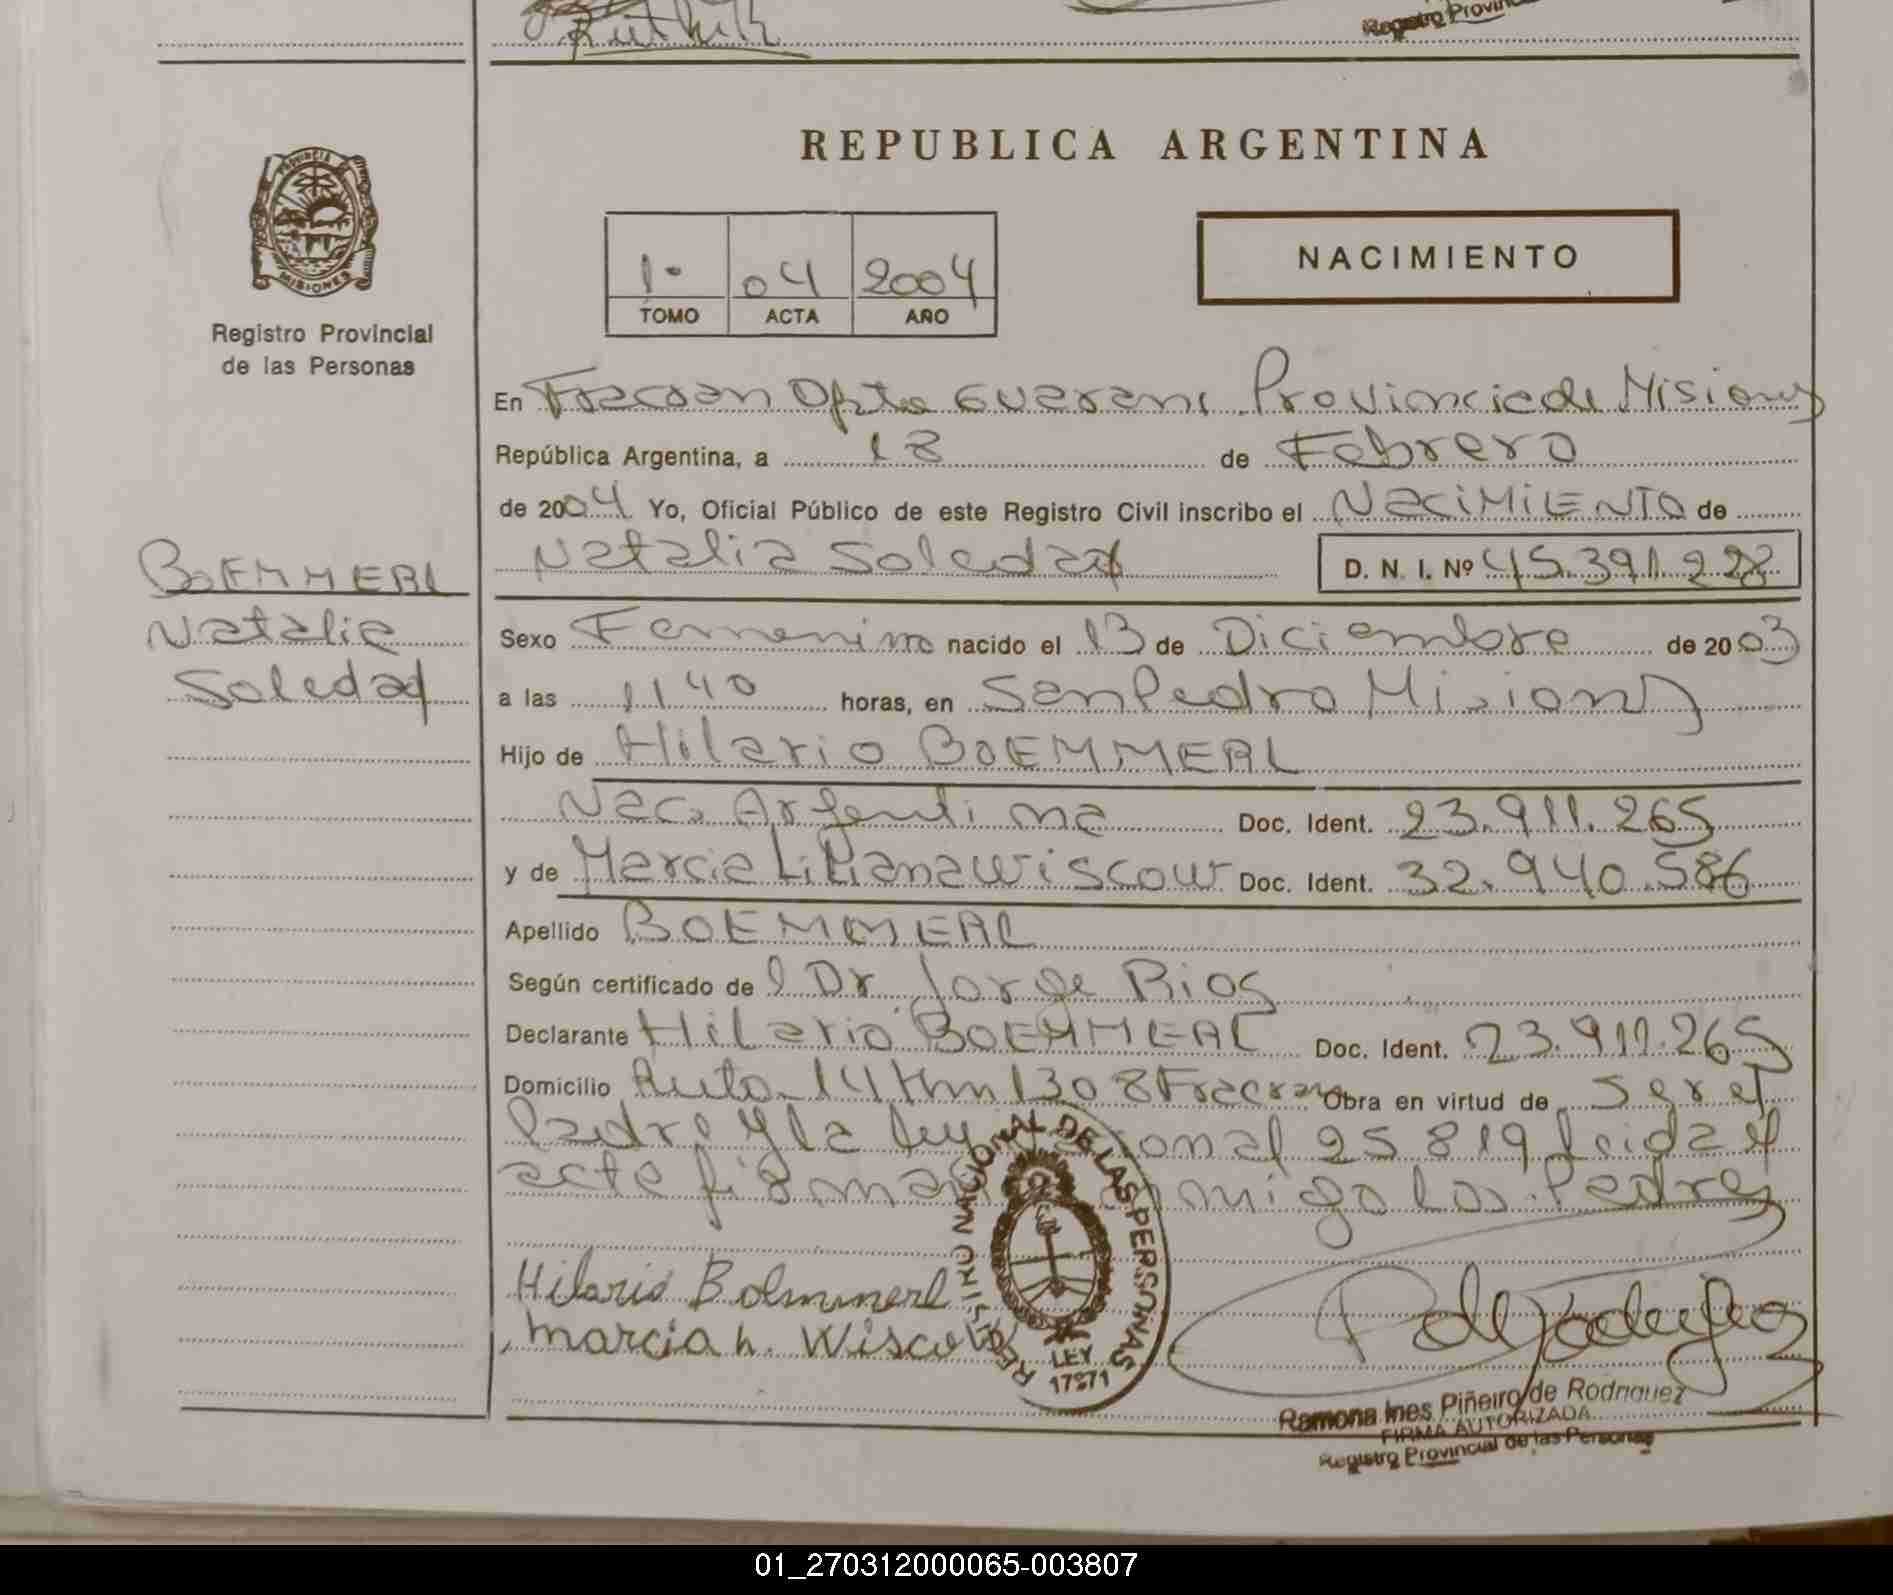 Ruth K
Registro Provin
PROVINCIA
MISIONES
Registro Provincial
de las Personas
BOEMMERL
Natalia
Soledad
REPUBLICA ARGENTINA
1º 04 2004
TOMO ACTA AÑO
NACIMIENTO
En Fracran Dpto Guarani Provincia de Misiones
República Argentina, a 18 de Febrero
de 2004 Yo, Oficial Público de este Registro Civil inscribo el NaciMiENTO de
Natalia Soledad D. N. I. Nº 45.391.228
Sexo Femenino nacido el 13 de Diciembre de 2003
a las 1140 horas, en San Pedro Misiones
Hijo de Hilario BOEMMERL
Nac. Argentina Doc. Ident. 23.911.265
y de Marcia Liliana Wiscow Doc. Ident. 32.940.586
Apellido BOEMMERL
Según certificado del Dr Jorge Rios
Declarante Hilario BOEMMERL Doc. Ident. 23.911.265
Domicilio Ruta 14 Km 1308 Fracran Obra en virtud de ser el
Padre y la ley ional 25819 leida el
acta firman migo los Padres
Hilario Boemmerl
Marcia L. Wiscow
REGISTRO NACIONAL DE LAS PERSONAS
LEY
17671
P de Rodriguez
Ramona Ines Piñeiro de Rodriguez
FIRMA AUTORIZADA
Registro Provincial de las Personas
01_270312000065-003807